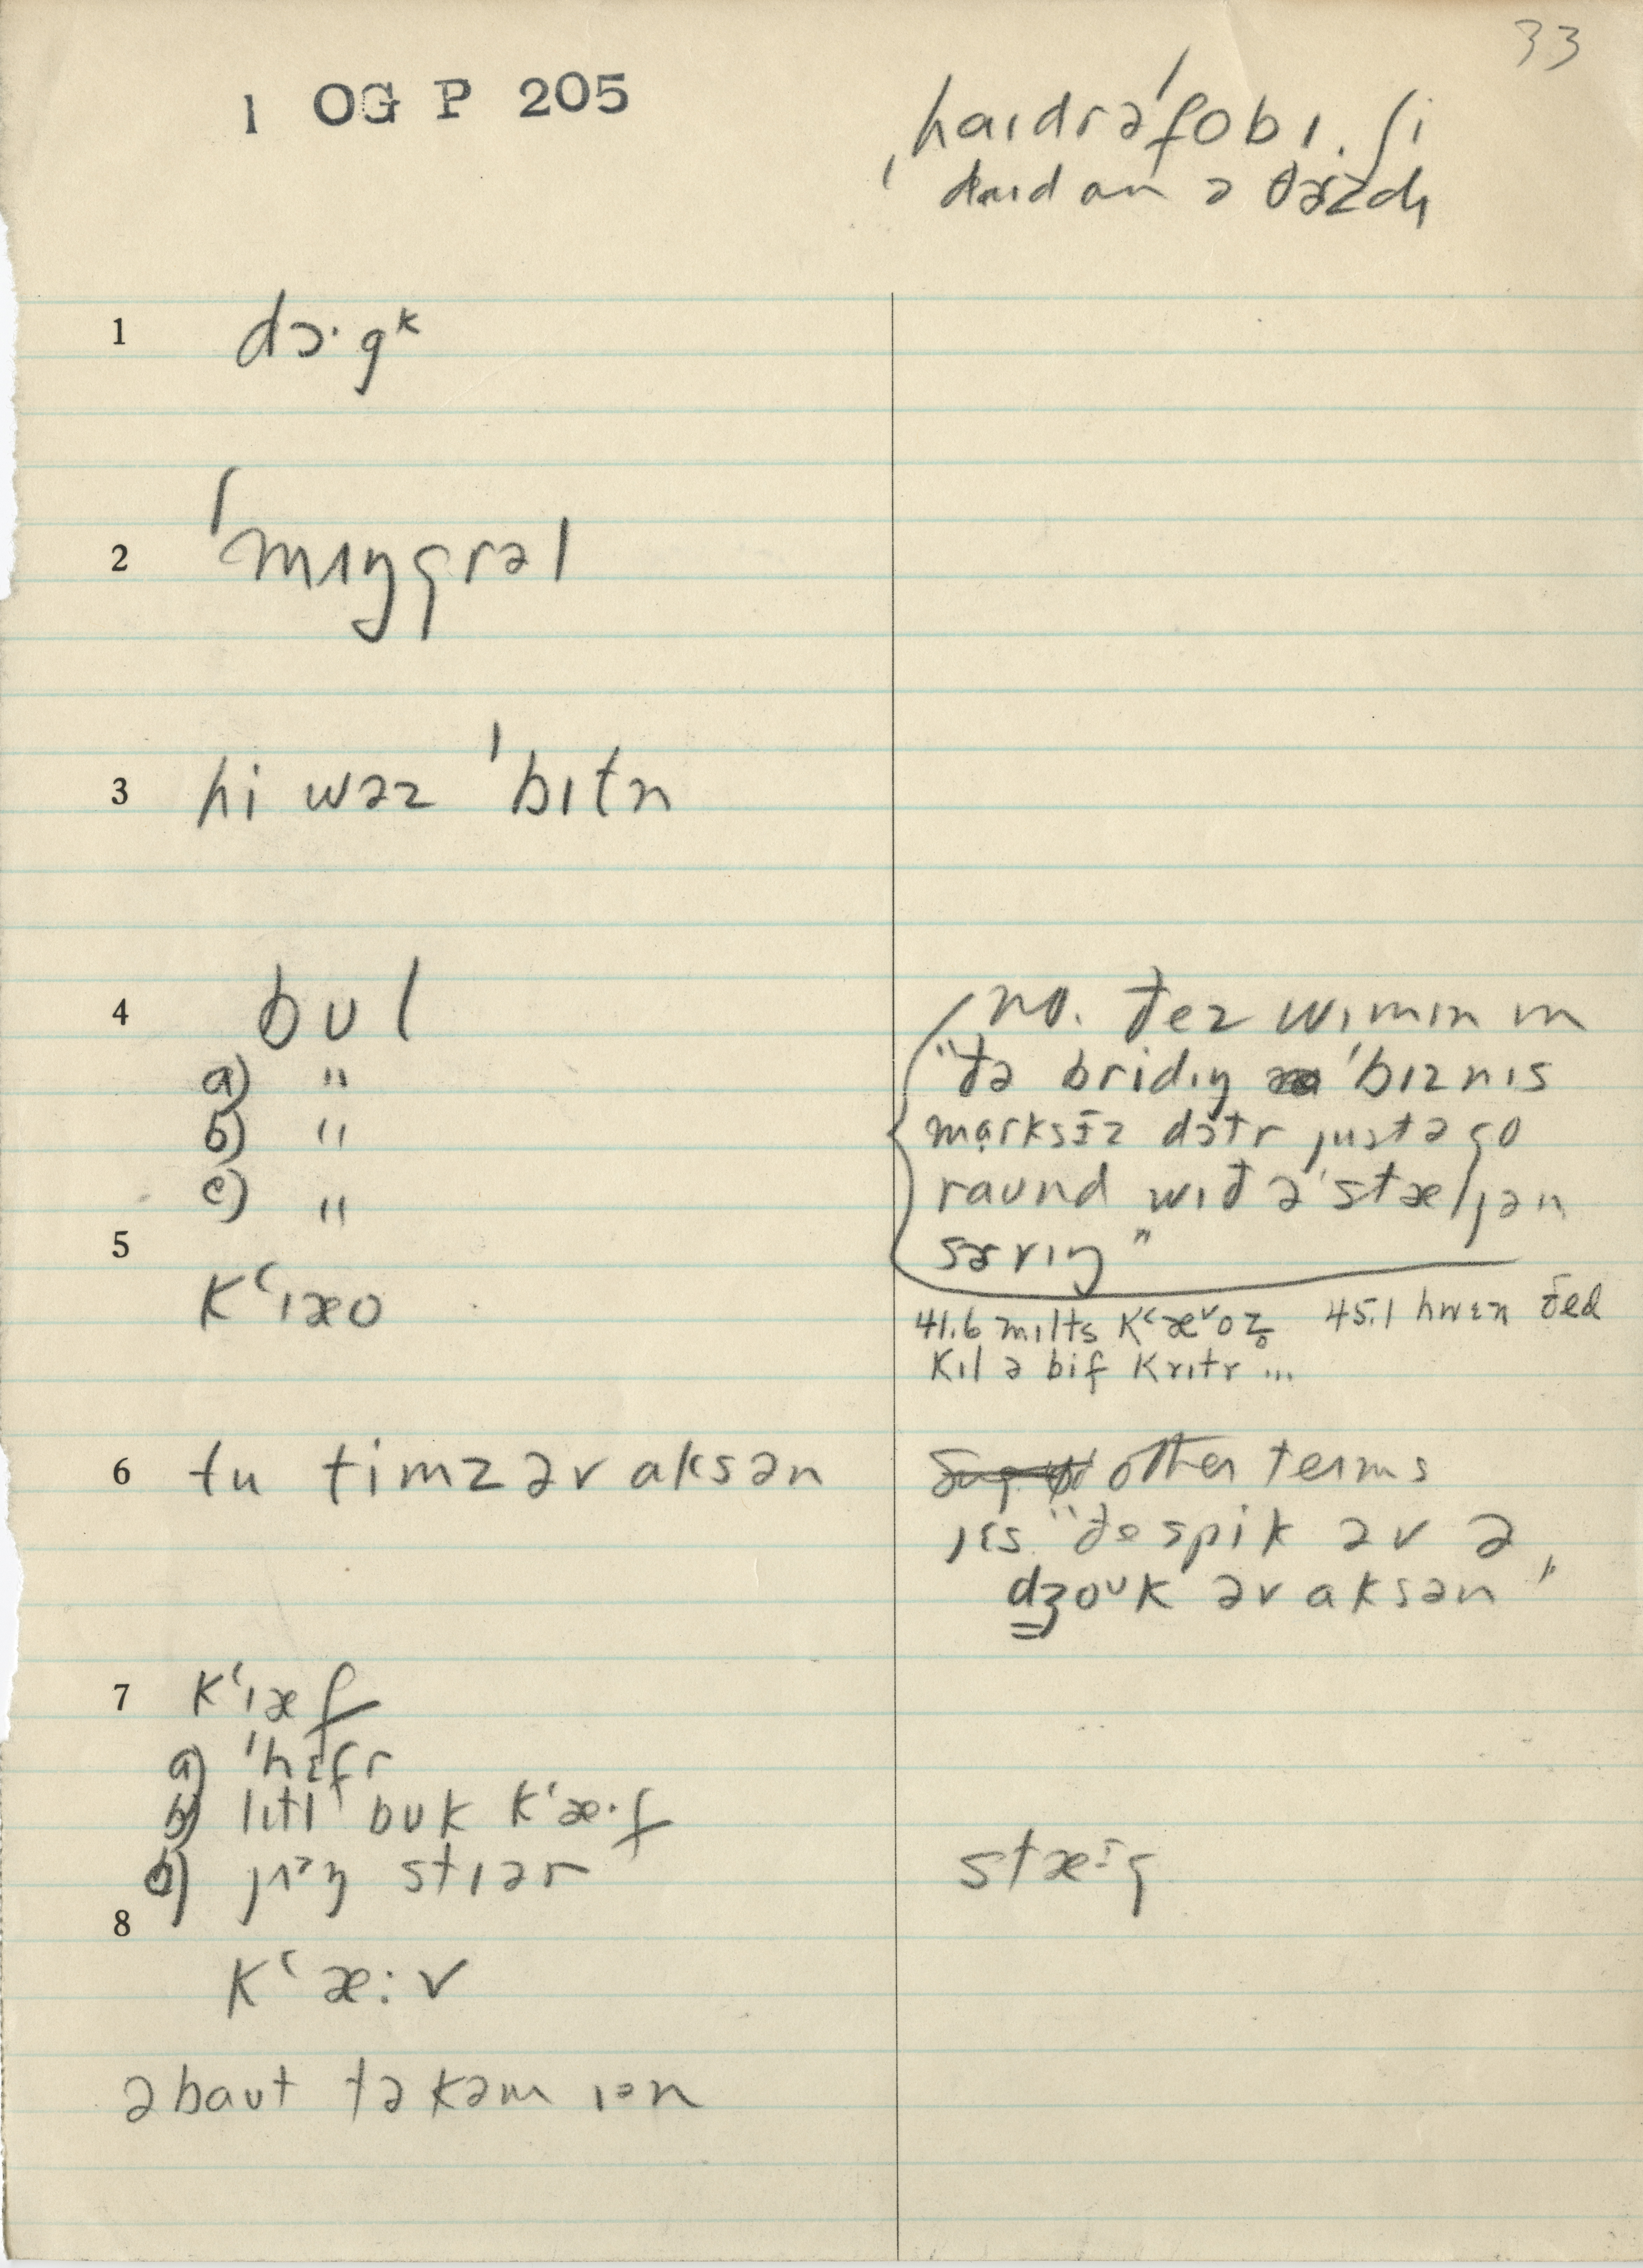 33
1 OG P 205
ˈhaɪdrəˈfobɪ. ʃi
daɪd ən ə θɚzdɪ
1 dɔ·gᵏ
2 ˈmɪŋgrəl
3 hi wəz ˈbɪtn
4 bʊl
a) "
b) "
c) "
no. ðez wɪmɪn ɪn
"ðə bridɪŋ ˈbɪznɪs
mɑrksɪz dɔtr justə go
raʊnd wɪð ə ˈstæljən
sɚvɪŋ"
5
kʻɪæo
41.6 mɪlts kʻæᵛoz̥ 45.1 hwɛn ðed
kɪl ə bif krɪtr ...
6 tu timz əv aksən
other terms
jɛs "ðe spik əv ə
dʒoᵘk əv aksən"
7 kʻɪæf
a) ˈhɛfr
b) lɪtl bʊk kʻæ·f
b) jɪᵊŋ stɪər
stæᶦg
8
kʻæ:v
əbaut tə kəm ɪən